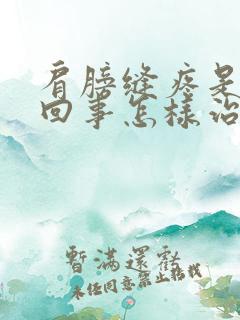 肩膀缝疼是
回事怎样治
暂满还亏
未经同意禁止搭载